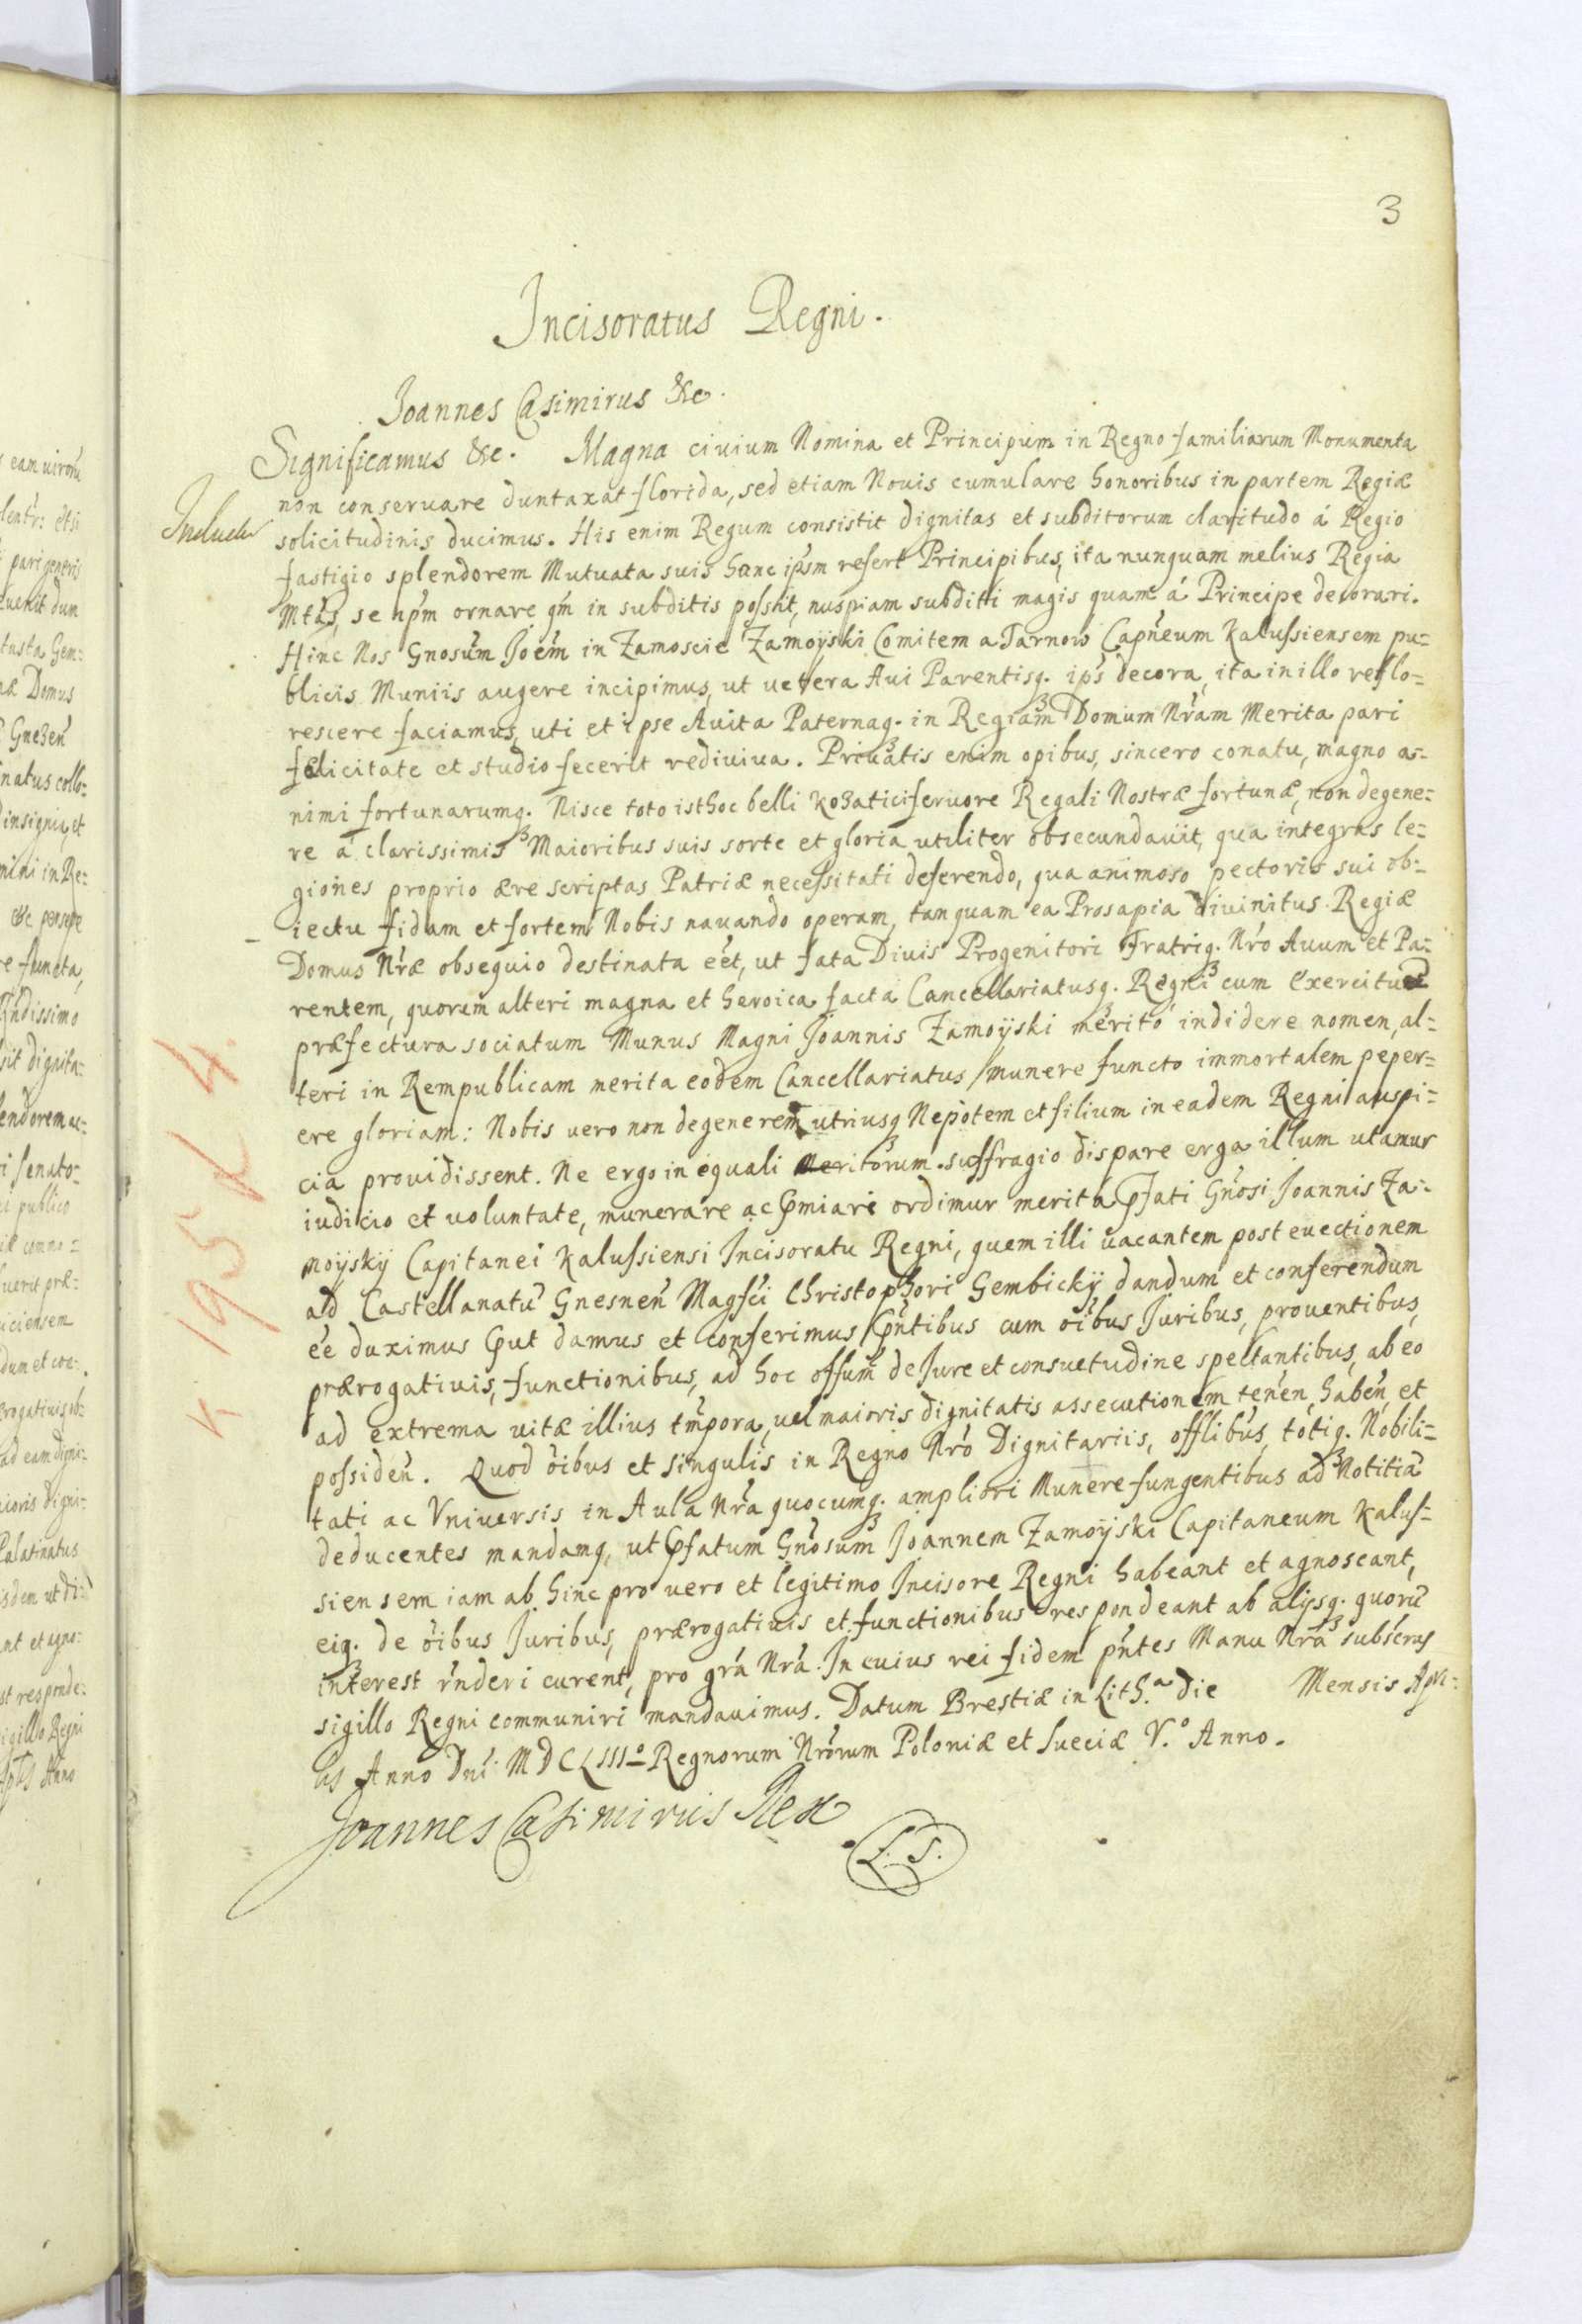 3
Incisoratus Regni.
Joannes Casimirus &c.
Significamus &c. Magna civium Nomina et Principum in Regno familiarum Monumenta
non conseruare duntaxat florida, sed etiam Nouis cumulare honoribus in partem Regiæ
solicitudinis ducimus. His enim Regum consistit dignitas et subditorum claritudo á Regio
fastigio splendorem Mutuata suis hanc ipsm refert Principibus, ita nunquam melius Regia
Mtas, se ipm ornare qm in subditis possit, nuspiam subditi magis quam á Principe decorari.
Hinc Nos Gnosum Joem in Zamoscie Zamoyski Comitem a Tarnow Capneum Kalussiensem pu=
blicis Muniis augere incipimus, ut uetera Aui Parentisq. ips decora, ita in illo reflo=
rescere faciamus, uti et ipse Auita Paternaq. in Regiam Domum Nram Merita pari
felicitate et studio fecerit rediuiua. Priuatis enim opibus, sincero conatu, magno a=
nimi fortunarumq. Nisce toto isthoc belli Kozatici feruore Regali Nostræ fortunæ, non degene=
re á clarissimis Maioribus suis sorte et gloria utiliter obsecundauit, qua integras le=
giones proprio ære scriptas Patriæ necessitati deferendo, qua animoso pectoris sui ob=
iectu fidam et fortem Nobis nauando operam, tanquam ea Prosapia diuinitus Regiæ
Domus Nræ obsequio destinata eet, ut fata Diuis Progenitori Fratriq. Nro Auum et Pa=
rentem, quorum alteri magna et heroica facta Cancellariatusq. Regni cum Exercitu
præfectura sociatum Munus Magni Joannis Zamoyski merito indidere nomen, al=
teri in Rempublicam merita eodem Cancellariatus munere functo immortalem peper=
ere gloriam: Nobis uero non degenerem utriusq Nepotem et filium in eadem Regni auspi=
cia prouidissent. Ne ergo in equali meritorum suffragio dispare erga illum utamur
iudicio et uoluntate, munerare ac pmiari ordimur merita pfati Gnosi Joannis Za=
moyskij Capitanei Kalussiensi Incisoratu Regni, quem illi uacantem post euectionem
ad Castellanatu Gnesnen Magfci Christophori Gembickij dandum et conferendum
ee duximus put damus et conferimus pntibus cum oibus Juribus, prouentibus,
prærogatiuis, functionibus, ad hoc offum de Jure et consuetudine spectantibus, ab eo
ad extrema uitæ illius tmpora, uel maioris dignitatis assecutionem tenen, haben, et
possiden. Quod oibus et singulis in Regno Nro Dignitariis, offlibus, totiq. Nobili=
tati ac Vniuersis in Aula Nra quocumq. ampliori Munere fungentibus ad Notitia
deducentes mandamq, ut pfatum Gnosum Joannem Zamoyski Capitaneum Kalus=
siensem iam ab hinc pro uero et legitimo Incisore Regni habeant et agnoscant,
eiq. de oibus Juribus, prærogatiuis et functionibus respondeant ab alijsq. quoru
interest rnderi curent, pro gra Nra. In cuius rei fidem pntes Manu Nra subscras
sigillo Regni communiri mandauimus. Datum Brestiæ in Lith.a die Mensis Apri=
lis Anno Dni MDCLIIIo Regnorum Nrorum Poloniæ et Sueciæ V.o Anno.
Joannes Casimirus Rex
L. S.
K 195 K 4.